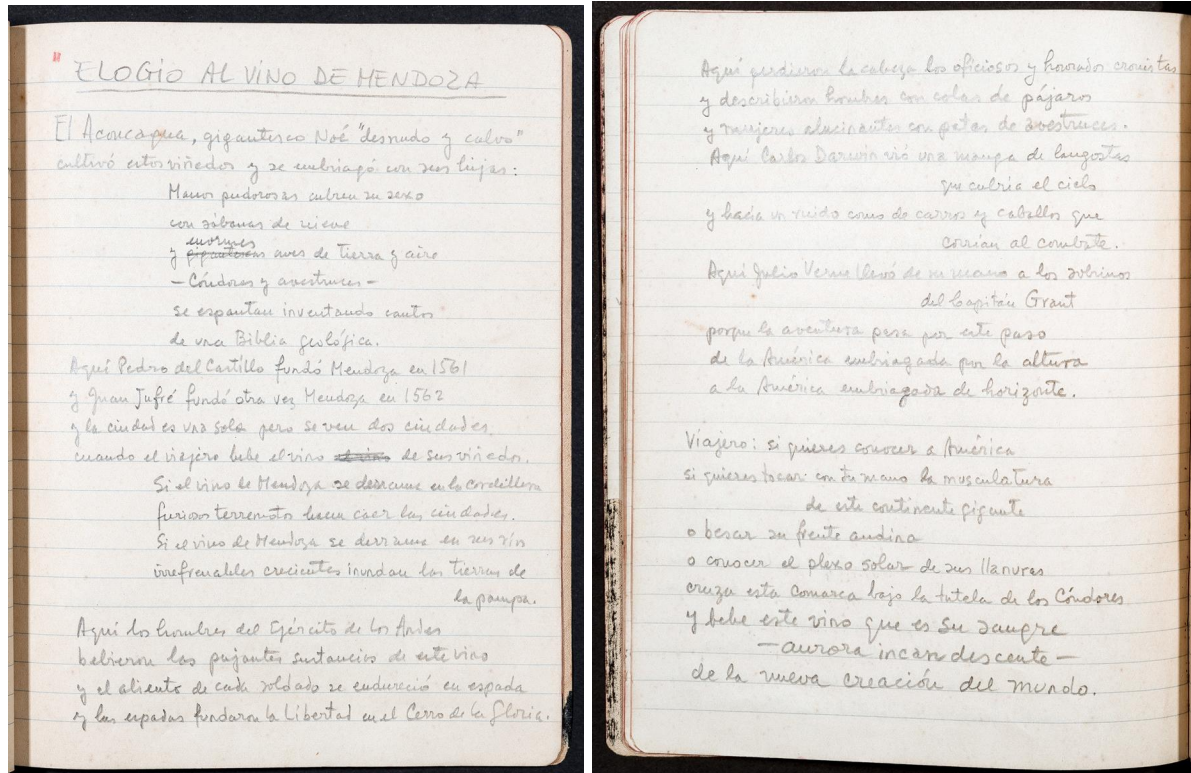 ELOGIO AL VINO DE MENDOZA
El Aconcagua, gigantesco Noé "desnudo y calvo"
cultivó estos viñedos y se embriagó con sus hijas:
Manos pudorosas cubren su sexo
con sábanas de nieve
enormes
y gigantescas aves de tierra y aire
—Cóndores y avestruces—
se espantan inventando cantos
de una Biblia geológica.
Aquí Pedro del Castillo fundó Mendoza en 1561
y Juan Jufré fundó otra vez Mendoza en 1562
y la ciudad es una sola pero se ven dos ciudades
cuando el viajero bebe el vino de sus viñedos.
Si el vino de Mendoza se derrama en la cordillera
furiosos terremotos hacen caer las ciudades.
Si el vino de Mendoza se derrama en sus ríos
irrefrenables crecientes inundan las tierras de
la pampa.
Aquí los hombres del Ejército de Los Andes
bebieron las pujantes sustancias de este vino
y el aliento de cada soldado se endureció en espada
y las espadas fundaron la Libertad en el Cerro de la Gloria.
Aquí perdieron la cabeza los oficiosos y honrados cronistas
y describieron hombres con colas de pájaros
y mujeres alucinantes con patas de avestruces.
Aquí Carlos Darwin vió una manga de langostas
que cubría el cielo
y hacía un ruido como de carros y caballos que
corrían al combate.
Aquí Julio Verne llevó de su mano a los sobrinos
del Capitán Grant
porque la aventura pasa por este paso
de la América embriagada por la altura
a la América embriagada de horizonte.
Viajero: si quieres conocer a América
si quieres tocar con tu mano la musculatura
de este continente gigante
o besar su frente andina
o conocer el plexo solar de sus llanuras
cruza esta comarca bajo la tutela de los Cóndores
y bebe este vino que es su sangre
—aurora incandescente—
de la nueva creación del mundo.